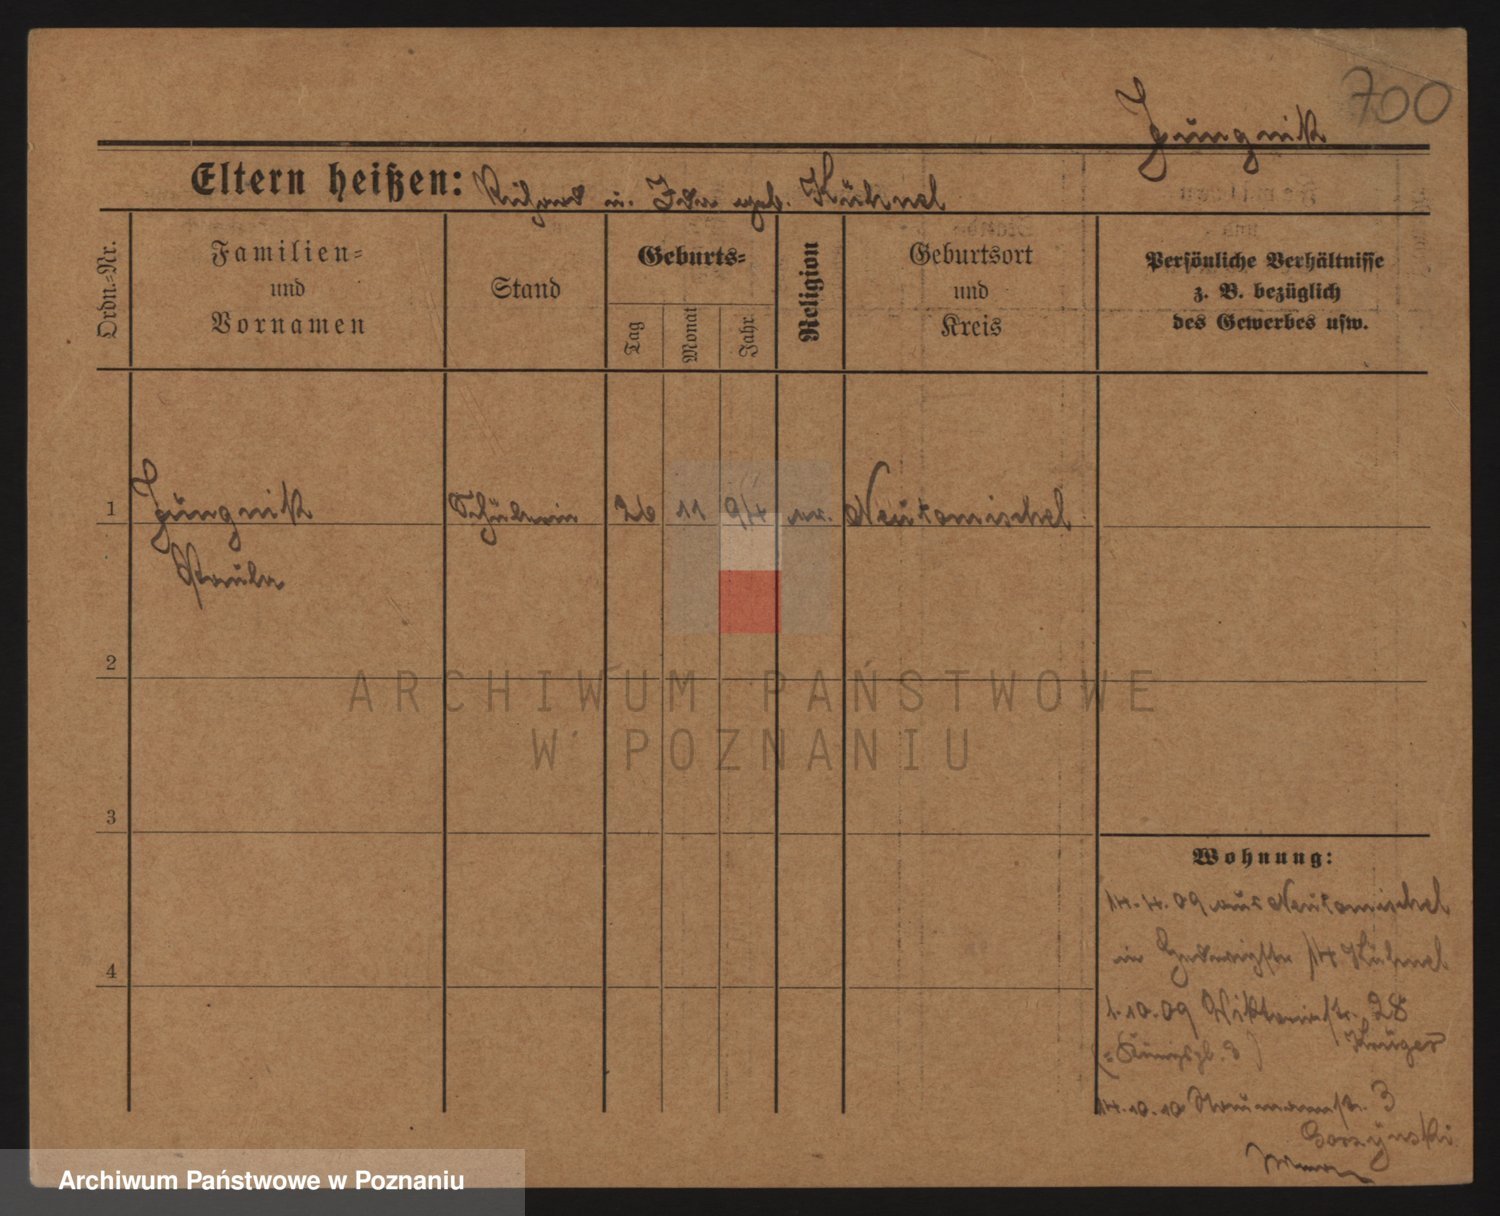 700
Jüngnik
Eltern heißen: Richard u. Ida geb. Kühnel
Ordn.-Nr.
Familien-
und
Vornamen
Stand
Geburts-
Tag
Monat
Jahr
Religion
Geburtsort
und
Kreis
Persönliche Verhältnisse
z. B. bezüglich
des Gewerbes usw.
1
Jüngnik
Schülerin
26
11
94
ev.
Neutomischel
Paula
2
3
4
ARCHIWUM PAŃSTWOWE
W POZNANIU
Wohnung:
14.4.09 aus Neutomischel
in Hedwigstr 14 Kühnel
1.10.09 Viktoriastr. 28
Krüger
(= Königspl. 3)
14.10.10 Naumannstr. 3
Gorzynski
Archiwum Państwowe w Poznaniu